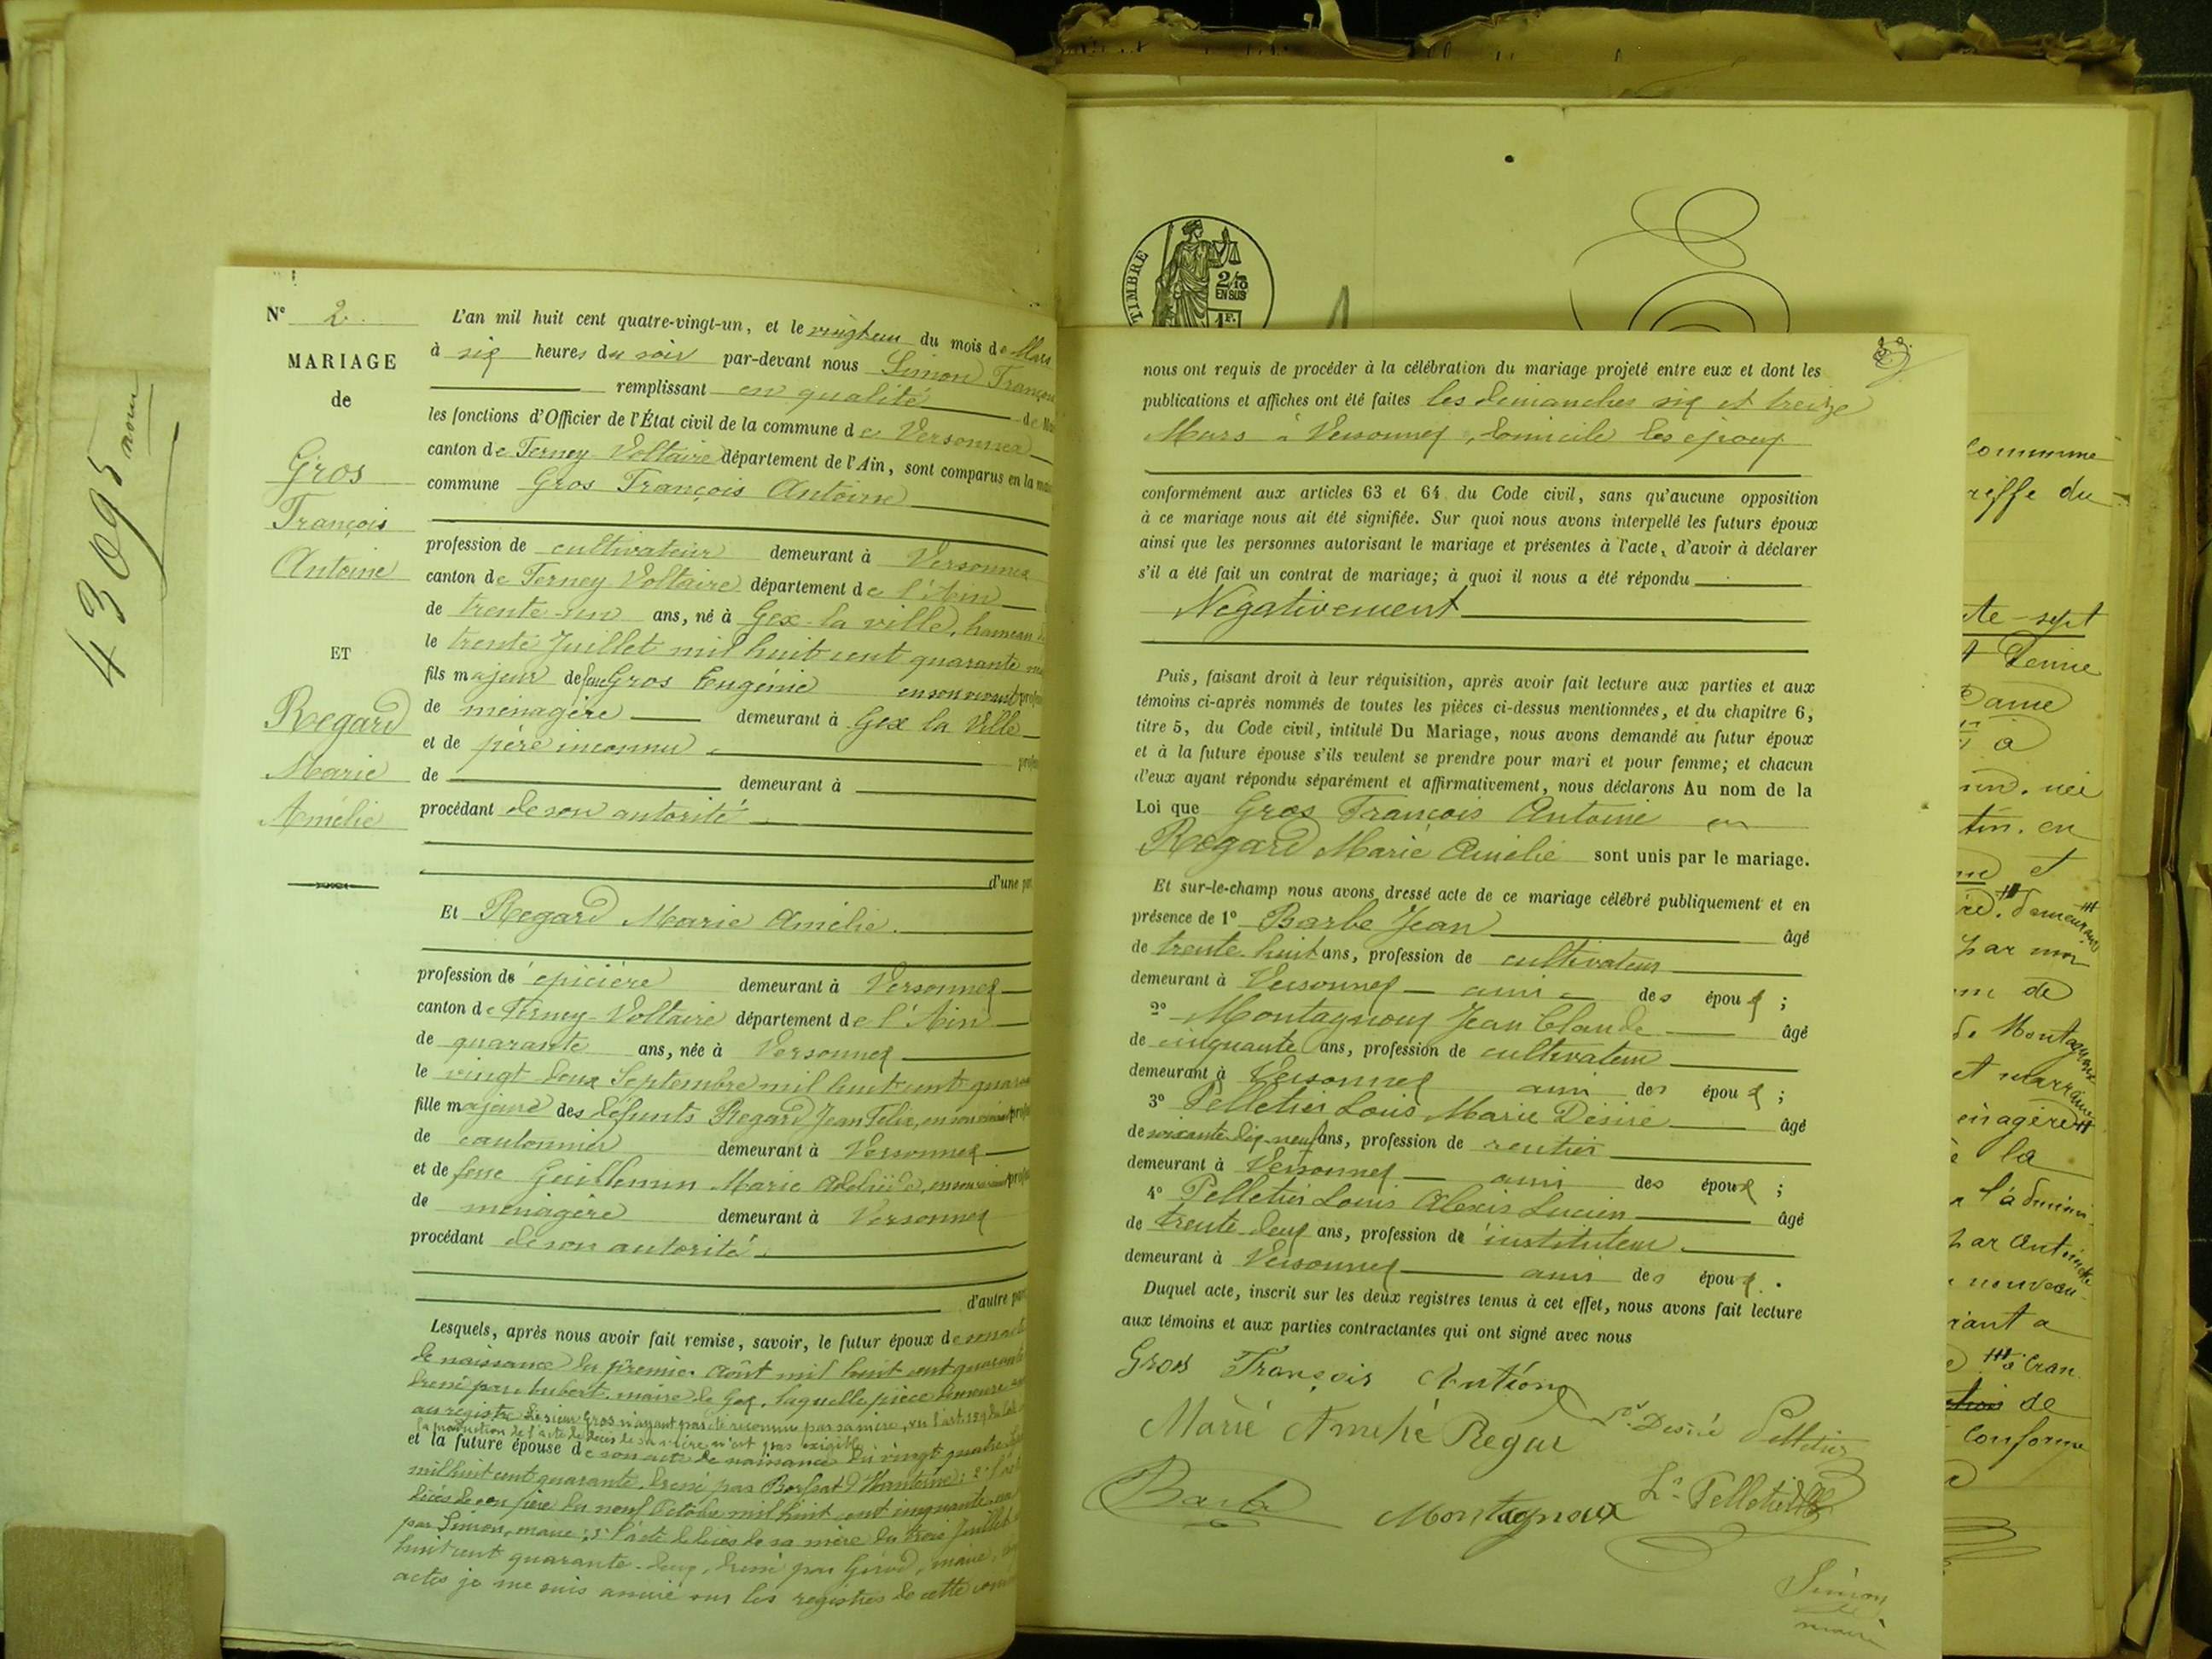 43095
N° 2
MARIAGE
de
Gros
François
Antoine
ET
Regard
Marie
Amélie
L'an mil huit cent quatre-vingt-un, et le vingt un du mois de Mars
à six heures du soir par-devant nous Simon François
remplissant en qualité de
les fonctions d'Officier de l'État civil de la commune de Versonnex
canton de Ferney-Voltaire département de l'Ain, sont comparus en la
commune Gros François Antoine
profession de cultivateur demeurant à Versonnex
canton de Ferney Voltaire département de l'Ain
de trente-un ans, né à Gex-la ville, hameau
le trente Juillet mil huit cent quarante
fils majeur de feue Gros Eugénie en son vivant
de ménagère demeurant à Gex la Ville
et de père inconnu
de demeurant à
procédant de son autorité
d'une
Et Regard Marie Amélie.
profession de épicière demeurant à Versonnex
canton de Ferney-Voltaire département de l'Ain
de quarante ans, née à Versonnex
le vingt deux Septembre mil huit cent
fille majeure des défunts Regard Jean Felix, en son vivant
de cantonnier demeurant à Versonnex
et de feue Guillemin Marie en son vivant
de ménagère demeurant à Versonnex
procédant de son autorité.
d'autre
Lesquels, après nous avoir fait remise, savoir, le futur époux de son acte
de naissance du premier Août mil huit cent quarante
dressé par hubert, maire de Gex, laquelle pièce demeure
au registre. Le sieur Gros n'ayant pas été reconnu par sa mère, vu l'art.
la production de l'acte de décès de sa mère n'est pas exigible
et la future épouse de son acte de naissance du vingt quatre
mil huit cent quarante, dressé par
décès de son père du neuf Octobre mil huit cent cinquante
par Simon, maire; 3° l'acte de décès de sa mère du trois Juillet
huit cent quarante-deux, dressé par Girod, maire,
actes je me suis assuré sur les registres de cette
nous ont requis de procéder à la célébration du mariage projeté entre eux et dont les
publications et affiches ont été faites les dimanches six et treize
Mars à Versonnex, domicile des époux
conformément aux articles 63 et 64 du Code civil, sans qu'aucune opposition
à ce mariage nous ait été signifiée. Sur quoi nous avons interpellé les futurs époux
ainsi que les personnes autorisant le mariage et présentes à l'acte, d'avoir à déclarer
s'il a été fait un contrat de mariage; à quoi il nous a été répondu
Négativement
Puis, faisant droit à leur réquisition, après avoir fait lecture aux parties et aux
témoins ci-après nommés de toutes les pièces ci-dessus mentionnées, et du chapitre 6,
titre 5, du Code civil, intitulé Du Mariage, nous avons demandé au futur époux
et à la future épouse s'ils veulent se prendre pour mari et pour femme; et chacun
d'eux ayant répondu séparément et affirmativement, nous déclarons Au nom de la
Loi que Gros François Antoine
Regard Marie Amélie sont unis par le mariage.
Et sur-le-champ nous avons dressé acte de ce mariage célébré publiquement et en
présence de 1° Barbe Jean âgé
de trente huit ans, profession de cultivateur
demeurant à Versonnex ami des époux ;
2° Montagnoux Jean Claude âgé
de cinquante ans, profession de cultivateur
demeurant à Versonnex ami des époux ;
3° Pelletier Louis Marie Désiré âgé
de soixante dix-neuf ans, profession de rentier
demeurant à Versonnex ami des époux ;
4° Pelletier Louis Alexis Lucien âgé
de trente-deux ans, profession de instituteur
demeurant à Versonnex ami des époux .
Duquel acte, inscrit sur les deux registres tenus à cet effet, nous avons fait lecture
aux témoins et aux parties contractantes qui ont signé avec nous
Gros François
Marie Amelie Regar
Desiré Pelletier
Barbe
Montagnoux
Ls Pelletier
Simon
maire
TIMBRE
2/10
EN SUS
1 F.
commune
greffe du
sept
Dame
à
et
par mon
de
la
nouveau
de
Conforme